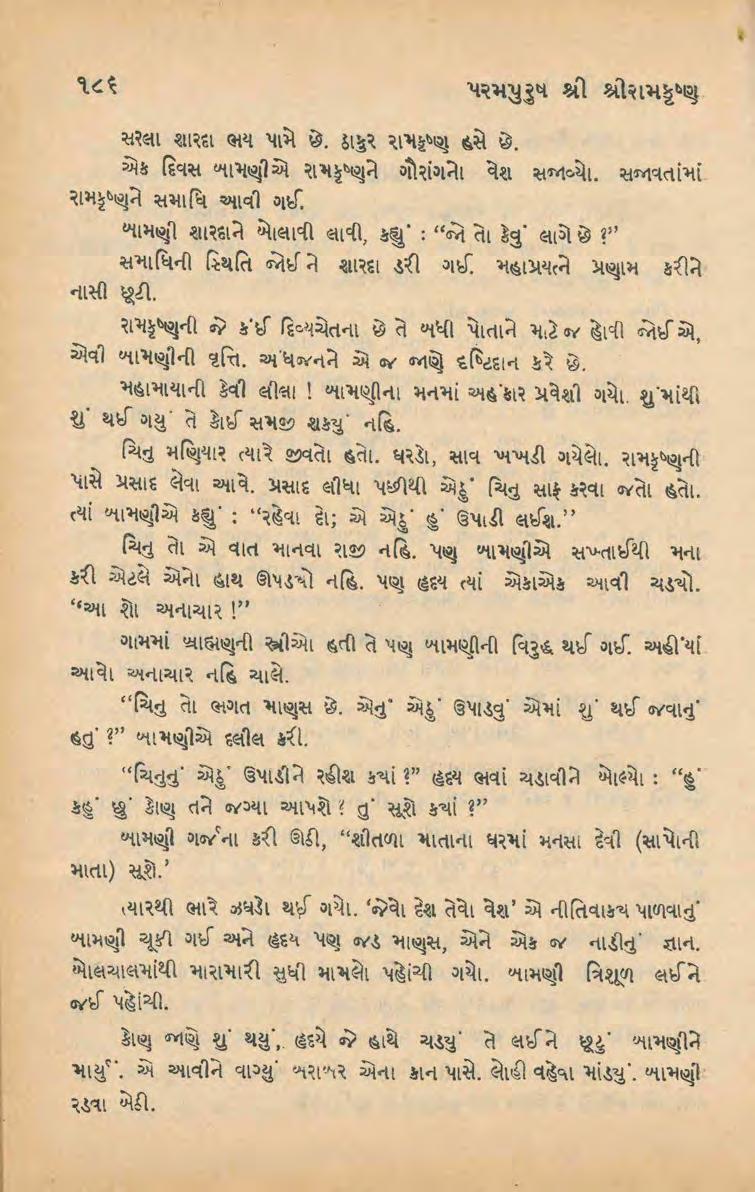 ૧૮૬ પરમપુરુષ શ્રી શ્રીરામકૃષ્ણ
સરલા શારદા ભય પામે છે. ઠાકુર રામકૃષ્ણ હસે છે.
એક દિવસ બામણીએ રામકૃષ્ણને ગૌરાંગનો વેશ સજાવ્યો. સજાવતાંમાં
રામકૃષ્ણને સમાધિ આવી ગઈ.
બામણી શારદાને બોલાવી લાવી, કહ્યું : “જો તો કેવું લાગે છે ?”
સમાધિની સ્થિતિ જોઈને શારદા ડરી ગઈ. મહાપ્રયત્ને પ્રણામ કરીને
નાસી છૂટી.
રામકૃષ્ણની જે કંઈ દિવ્યચેતના છે તે બધી પોતાને માટે જ હોવી જોઈએ,
એવી બામણીની વૃત્તિ. અંધજનને એ જ જાણે દષ્ટિદાન કરે છે.
મહામાયાની કેવી લીલા ! બામણીના મનમાં અહંકાર પ્રવેશી ગયો. શુંમાંથી
શું થઈ ગયું તે કોઈ સમજી શક્યું નહિ.
ચિનુ મણિયાર ત્યારે જીવતો હતો. ઘરડો, સાવ ખખડી ગયેલો. રામકૃષ્ણની
પાસે પ્રસાદ લેવા આવે. પ્રસાદ લીધા પછીથી એઠું ચિનુ સાફ કરવા જતો હતો.
ત્યાં બામણીએ કહ્યું : “રહેવા દો; એ એઠું હું ઉપાડી લઈશ.”
ચિનુ તો એ વાત માનવા રાજી નહિ. પણ બામણીએ સખ્તાઈથી મના
કરી એટલે એનો હાથ ઊપડ્યો નહિ. પણ હૃદય ત્યાં એકાએક આવી ચડ્યો.
“આ શો અનાચાર !”
ગામમાં બ્રાહ્મણની સ્ત્રીઓ હતી તે પણ બામણીની વિરુદ્ધ થઈ ગઈ. અહીંયાં
આવો અનાચાર નહિ ચાલે.
“ચિનુ તો ભગત માણસ છે. એનું એઠું ઉપાડવું એમાં શું થઈ જવાનું
હતું ?” બામણીએ દલીલ કરી.
“ચિનુનું એઠું ઉપાડીને રહીશ ક્યાં ?” હૃદય ભવાં ચડાવીને બોલ્યો : “હું
કહું છું કોણ તને જગ્યા આપશે ? તું સૂશે ક્યાં ?”
બામણી ગર્જના કરી ઊઠી, “શીતળા માતાના ઘરમાં મનસા દેવી (સાપોની
માતા) સૂશે.’
ત્યારથી ભારે ઝઘડો થઈ ગયો. ‘જેવો દેશ તેવો વેશ’ એ નીતિવાક્ય પાળવાનું
બામણી ચૂકી ગઈ અને હૃદય પણ જડ માણસ, એને એક જ નાડીનું જ્ઞાન.
બોલચાલમાંથી મારામારી સુધી મામલો પહોંચી ગયો. બામણી ત્રિશૂળ લઈને
જઈ પહોંચી.
કોણ જાણે શું થયું, હૃદયે જે હાથે ચડયું તે લઈને છૂટું બામણીને
માર્યું. એ આવીને વાગ્યું બરાબર એના કાન પાસે. લોહી વહેવા માંડયું. બામણી
રડવા બેઠી.